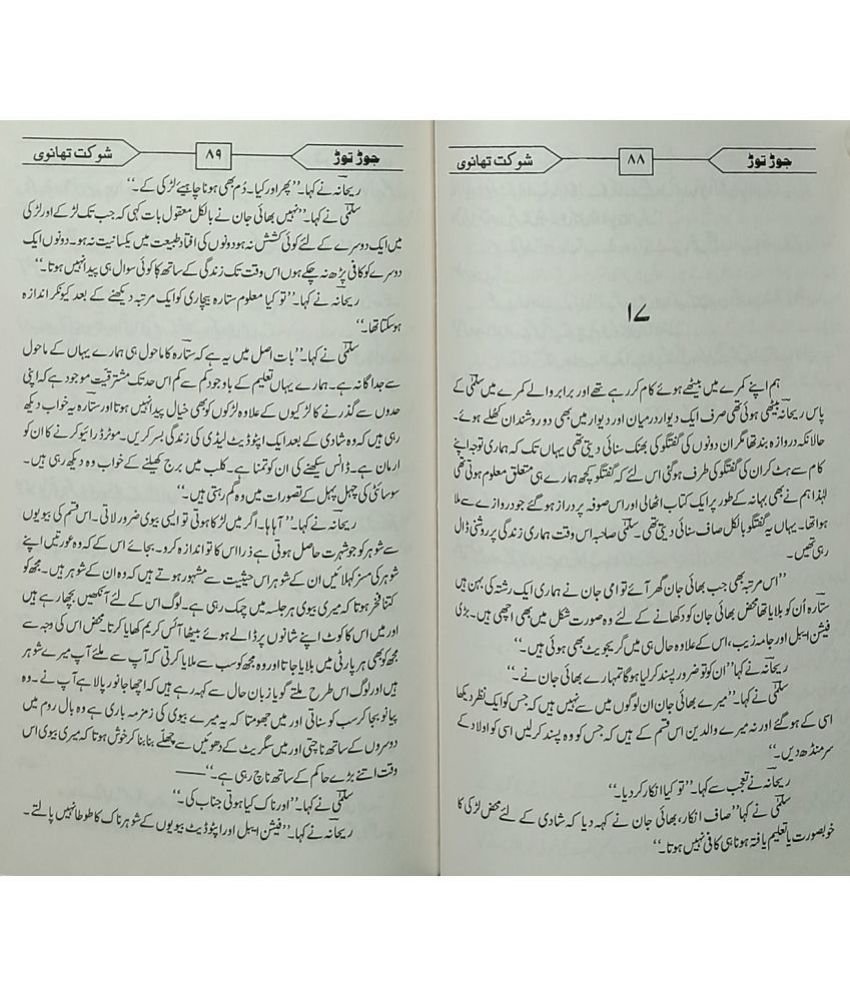 جوڑ توڑ ۸۸ شوکت تھانوی
۱۷
ہم اپنے کمرے میں بیٹھے ہوئے کام کر رہے تھے اور برابر والے کمرے میں سلمٰی کے
پاس ریحانہ بیٹھی ہوئی تھی صرف ایک دیوار درمیان اور دیوار میں بھی دو روشندان کھلے ہوئے۔
حالانکہ دروازہ بند تھا مگر ان دونوں کی گفتگو کی بھنک سنائی دیتی تھی یہاں تک کہ ہماری توجہ اپنے
کام سے ہٹ کر ان کی گفتگو کی طرف ہو گئی اس لئے کہ گفتگو کچھ ہمارے ہی متعلق معلوم ہوتی تھی
لہٰذا ہم نے بھی بہانہ کے طور پر ایک کتاب اٹھا لی اور اس صوفہ پر دراز ہو گئے جو دروازے سے ملا
ہوا تھا۔ یہاں یہ گفتگو بالکل صاف سنائی دیتی تھی۔ سلمٰی صاحبہ اس وقت ہماری زندگی پر روشنی ڈال
رہی تھیں۔
”اس مرتبہ بھی جب بھائی جان گھر آئے تو امی جان نے ہماری ایک رشتہ کی بہن ہیں
ستارہ اُن کو بلایا تھا محض بھائی جان کو دکھانے کے لئے وہ صورت شکل میں بھی اچھی ہیں۔ بڑی
فیشن ایبل اور جامہ زیب، اس کے علاوہ حال ہی میں گریجویٹ بھی ہوئی ہیں۔“
ریحانہ نے کہا ”ان کو تو ضرور پسند کر لیا ہوگا تمہارے بھائی جان نے۔“
سلمٰی نے کہا۔ ”میرے بھائی جان ان لوگوں میں سے نہیں ہیں کہ جس کو ایک نظر دیکھا
اسی کے ہو گئے اور نہ میرے والدین اس قسم کے ہیں کہ جس کو وہ پسند کر لیں اسی کو اولاد کے
سر منڈھ دیں۔“
ریحانہ نے تعجب سے کہا۔ ”تو کیا انکار کر دیا۔“
سلمٰی نے کہا ”صاف انکار، بھائی جان نے کہہ دیا کہ شادی کے لئے محض لڑکی کا
خوبصورت یا تعلیم یافتہ ہونا ہی کافی نہیں ہوتا۔“
جوڑ توڑ ۸۹ شوکت تھانوی
ریحانہ نے کہا۔ ”پھر اور کیا۔ دُم بھی ہونا چاہیے لڑکی کے۔“
سلمٰی نے کہا۔ ”نہیں بھائی جان نے بالکل معقول بات کہی کہ جب تک لڑکے اور لڑکی
میں ایک دوسرے کے لئے کوئی کشش نہ ہو دونوں کی افتاد طبیعت میں یکسانیت نہ ہو۔ دونوں ایک
دوسرے کو کافی پڑھ نہ چکے ہوں اس وقت تک زندگی کے ساتھ کا کوئی سوال ہی پیدا نہیں ہوتا۔“
ریحانہ نے کہا۔ ”تو کیا معلوم ستارہ بیچاری کو ایک مرتبہ دیکھنے کے بعد کیونکر اندازہ
ہو سکتا تھا۔“
سلمٰی نے کہا۔ ”بات اصل میں یہ ہے کہ ستارہ کا ماحول ہی ہمارے یہاں کے ماحول
سے جداگانہ ہے۔ ہمارے یہاں تعلیم کے باوجود کم سے کم اس حد تک مشرقیت موجود ہے کہ اپنی
حدوں سے گذرنے کا لڑکیوں کے علاوہ لڑکوں کو بھی خیال پیدا نہیں ہوتا اور ستارہ یہ خواب دیکھ
رہی ہیں کہ وہ شادی کے بعد ایک اپٹوڈیٹ لیڈی کی زندگی بسر کریں۔ موٹر ڈرائیو کرنے کا ان کو
ارمان ہے۔ ڈانس سیکھنے کی ان کو تمنا ہے۔ کلب میں برج کھیلنے کے خواب وہ دیکھ رہی ہیں۔
سوسائٹی کی چہل پہل کے تصورات میں وہ گم رہتی ہیں۔“
ریحانہ نے کہا۔ ”آہاہا۔ اگر میں لڑکا ہوتی تو ایسی بیوی ضرور لاتی۔ اس قسم کی بیویوں
سے شوہر کو جو شہرت حاصل ہوتی ہے ذرا اس کا تو اندازہ کرو۔ بجائے اس کے کہ وہ عورتیں اپنے
شوہر کی مسز کہلائیں ان کے شوہر اس حیثیت سے مشہور ہوتے ہیں کہ وہ ان کے شوہر ہیں۔ مجھ کو
کتنا فخر ہوتا کہ میری بیوی ہر جلسہ میں چمک رہی ہے۔ لوگ اس کے لئے آنکھیں بچھا رہے ہیں
اور میں اس کا کوٹ اپنے شانوں پر ڈالے ہوئے بیٹھا آئس کریم کھایا کرتا۔ محض اس کی وجہ سے
مجھ کو بھی ہر پارٹی میں بلایا جاتا اور وہ مجھ کو سب سے ملایا کرتی کہ آپ سے ملئے آپ میرے شوہر
ہیں اور لوگ اس طرح ملتے گویا زبان حال سے کہہ رہے ہیں کہ اچھا جانور پالا ہے آپ نے۔ وہ
پیانو بجا کر سب کو سناتی اور میں جھومتا کہ یہ میرے بیوی کی زمزمہ باری ہے وہ بال روم میں
دوسروں کے ساتھ ناچتی اور میں سگریٹ کے دھوئیں سے چھلّے بنا بنا کر خوش ہوتا کہ میری بیوی اس
وقت اتنے بڑے حاکم کے ساتھ ناچ رہی ہے۔“——
سلمٰی نے کہا۔ ”اور ناک کیا ہوتی جناب کی۔“
ریحانہ نے کہا۔ ”فیشن ایبل اور اپٹوڈیٹ بیویوں کے شوہر ناک کا طوطا نہیں پالتے۔